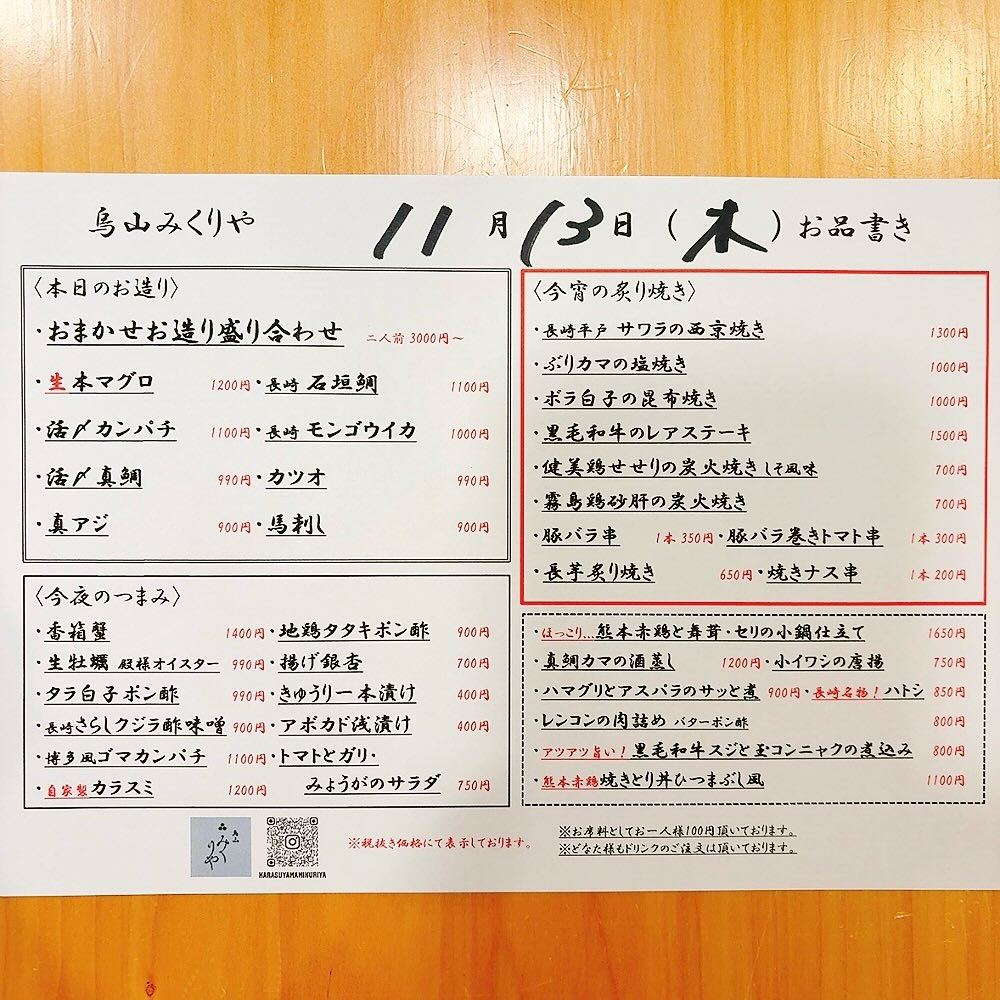 烏山みくりや 11月13日(木)お品書き
〈本日のお造り〉
・おまかせお造り盛り合わせ 二人前 3000円〜
・生本マグロ 1200円・長崎 石垣鯛 1100円
・活〆カンパチ 1100円・長崎 モンゴウイカ 1000円
・活〆真鯛 990円・カツオ 990円
・真アジ 900円・馬刺し 900円
〈今夜のつまみ〉
・香箱蟹 1400円・地鶏タタキポン酢 900円
・生牡蠣 殿様オイスター 990円・揚げ銀杏 700円
・タラ白子ポン酢 990円・きゅうり一本漬け 400円
・長崎さらしクジラ酢味噌 900円・アボカド浅漬け 400円
・博多風ゴマカンパチ 1100円・トマトとガリ・
・自家製カラスミ 1200円 みょうがのサラダ 750円
〈今宵の炙り焼き〉
・長崎平戸 サワラの西京焼き 1300円
・ぶりカマの塩焼き 1000円
・ボラ白子の昆布焼き 1000円
・黒毛和牛のレアステーキ 1500円
・健美鶏せせりの炭火焼きしそ風味 700円
・霧島鶏砂肝の炭火焼き 700円
・豚バラ串 1本 350円・豚バラ巻きトマト串 1本 300円
・長芋炙り焼き 650円・焼きナス串 1本 200円
・ほっこり...熊本赤鶏と舞茸・セリの小鍋仕立て 1650円
・真鯛カマの酒蒸し 1200円・小イワシの唐揚 750円
・ハマグリとアスパラのサッと煮 900円・長崎名物!ハトシ 850円
・レンコンの肉詰め バターポン酢 800円
・アツアツ旨い!黒毛和牛スジと玉コンニャクの煮込み 800円
・熊本赤鶏焼きとり丼ひつまぶし風 1100円
みくりや
KARASUYAMAMIKURIYA
※税抜き価格にて表示しております。
※お席料としてお一人様100円頂いております。
※どなた様もドリンクのご注文は頂いております。